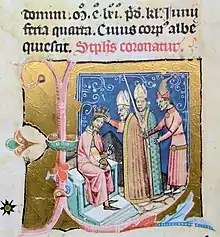 domini. mͦ. cͤ. lxii. pͥd. kl. Junii
feria quarta. Cuius corpꝰ albe
quiescit. Stephꝰs coronatur.